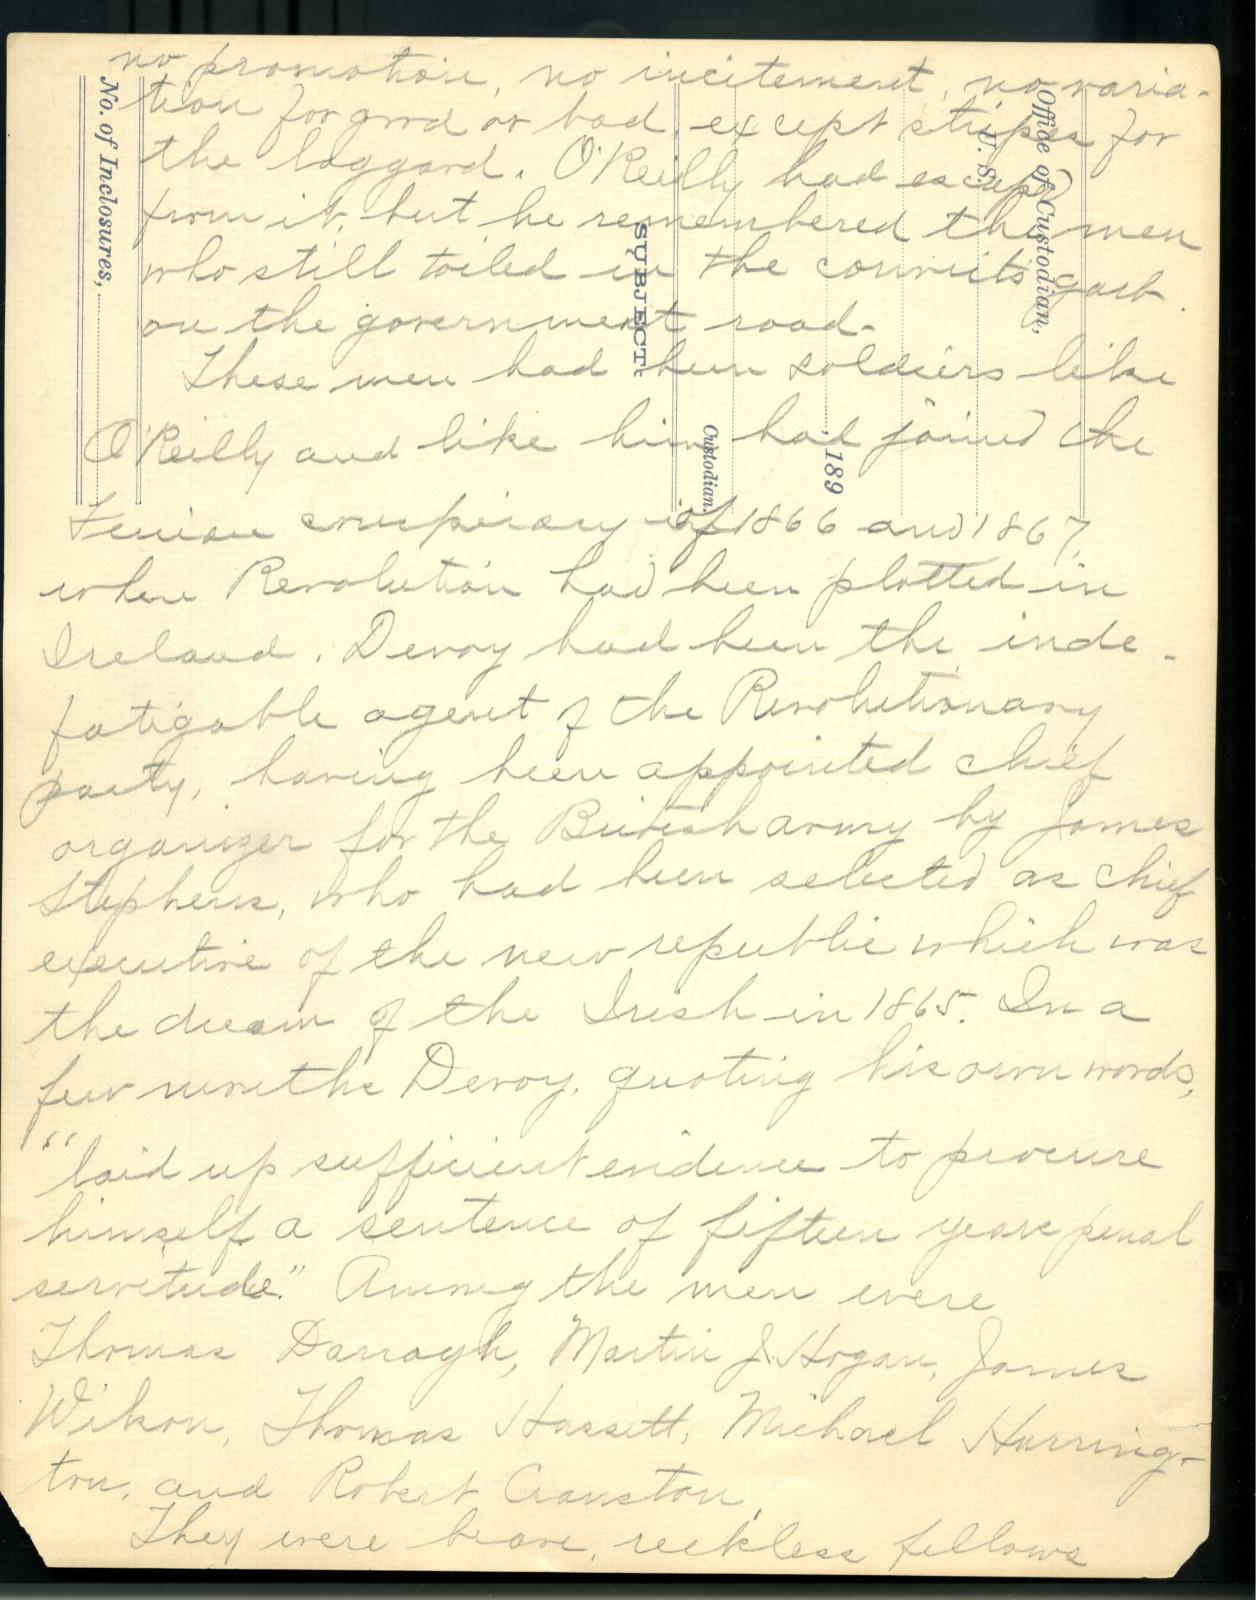 no promotion, no incitement, no varia-
tion for good or bad, except stripes for
the laggard. O'Reilly had escaped
from it, but he remembered the men
who still toiled in the convicts garb
on the government road.
These men had been soldiers like
O'Reilly and like him had joined the
Fenian conspiracy of 1866 and 1867,
when Revolution had been plotted in
Ireland. Devoy had been the inde-
fatigable agent of the Revolutionary
party, having been appointed chief
organizer for the British army by James
Stephens, who had been selected as chief
executive of the new republic which was
the dream of the Irish in 1865. In a
few months Devoy, quoting his own words,
"laid up sufficient evidence to procure
himself a sentence of fifteen years penal
servitude." Among the men were
Thomas Darragh, Martin J. Hogan, James
Wilson, Thomas Hassett, Michael Harring-
ton, and Robert Cranston.
They were brave, reckless fellows
No. of Inclosures,
SUBJECT:
Custodian.
, 189
U. S.
Office of Custodian,